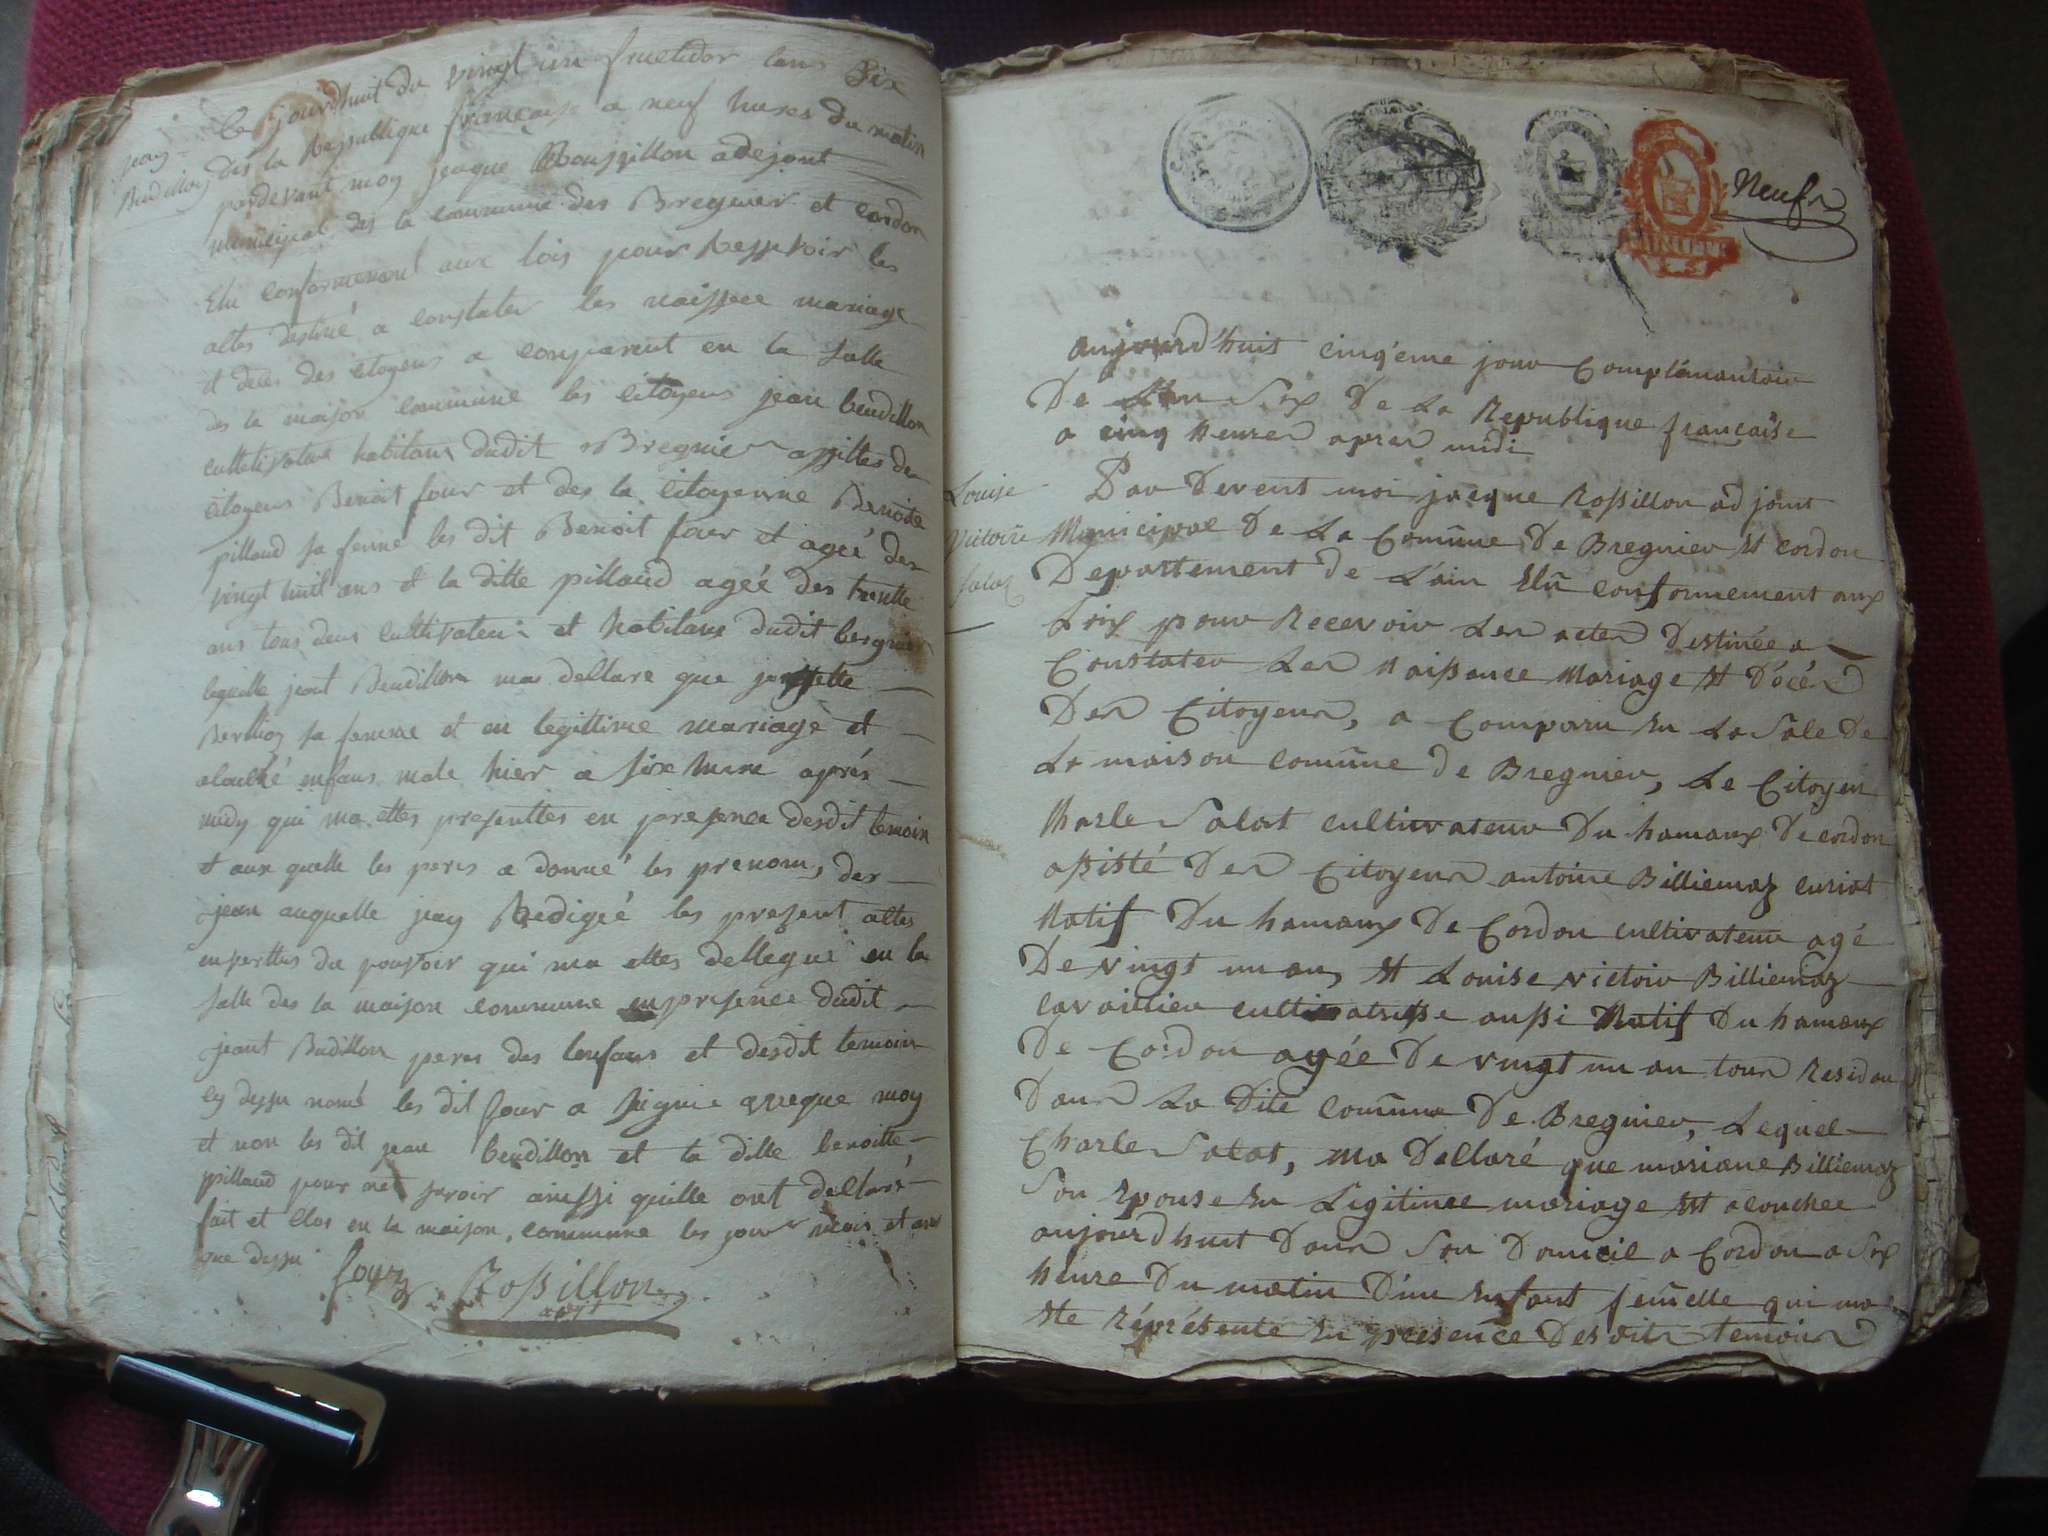 jean
Beudillon
Ce jourdhuit du vingt un fructidor lans Six
des la Republique française a neuf hures du matin
pardevant moy jacque Roussillon adejoint
municipal des la commune des Bregnier et cordon
Elu conformement aux lois pour Ressevoir les
altes destiné a constater les naissece mariage
et deces des citoyens a conparent en la salle
des la maison commune les citoyens jean beudillon
cultetivateur habitans dudit Bregnier assiltes des
citoyens Benoit four et des la citoyenne Benoite
pillaud sa femme les dit Benoit four et ageé des
vingt huit ans et la ditte pillaud ageé des trentte
ans tous deux cultivateur et habitans dudit bergnier
lequelle jeant Beudillon mas dellare que
Berlioz sa femme et en legittime mariage et
alouché enfans male hier a sixe hure aprés
midy qui ma ettes presenttes en presence desdit temoin
et aux quelle les peres a donné les prenom, des
jean auquelle jeay Redigeé les present altes
en verttus du pouvoir qui ma ettes dellegué en la
salle des la maison commune en presence dudit
jeant Budillon peres des lenfans et desdit temoin
cy dessu nomé les dit four a signie avveque moy
et non les dit jean beudillon et la ditte benoitte
pillaud pour net savoir ainssi quille ont dellaré
fait et Clos en la maison commune les jour mois et ans
que dessu
foyr Rossillon
adjt
Neufs
aujourd'huit cinq'eme jour Complémantoire
De L'an Six De La Republique française
a cinq heures apres midi
Louise
Victoire
Salat
Par Devent moi jacque Rossillon adjoint
Municipal De La Comũne De Bregnier Et cordon
Departement De L'ain Elu conformement aux
Loix pour Recevoir Les actes Destinée a
Constater Les Naissance Mariage Et D'écés
Des Citoyens, a Comparu En La Sale De
La maison comũne De Bregnier, Le Citoyen
Charle Salat cultivateur Du hamaux De cordon
assisté Des Citoyens antoine Billiemaz curiat
Natif Du hamaux De Cordon cultivateur agé
De vingt un an, Et Louise victoir Billiemaz
cavaillier cultivatrisse aussi Natif Du hamaux
De Cordon agée De vingt un an tous Residan
Dans La Dite comũne De Bregnier, Lequel
Charle Salat, ma Dellaré que mariane Billiemaz
Son Epouse En Légitimee mariage Est alouchee
aujourdhuit Dans Son Domicil a Cordon a Six
heure Du matin D'un Enfant femelle qui ma
Ete Répresente En presence Desdits temoins